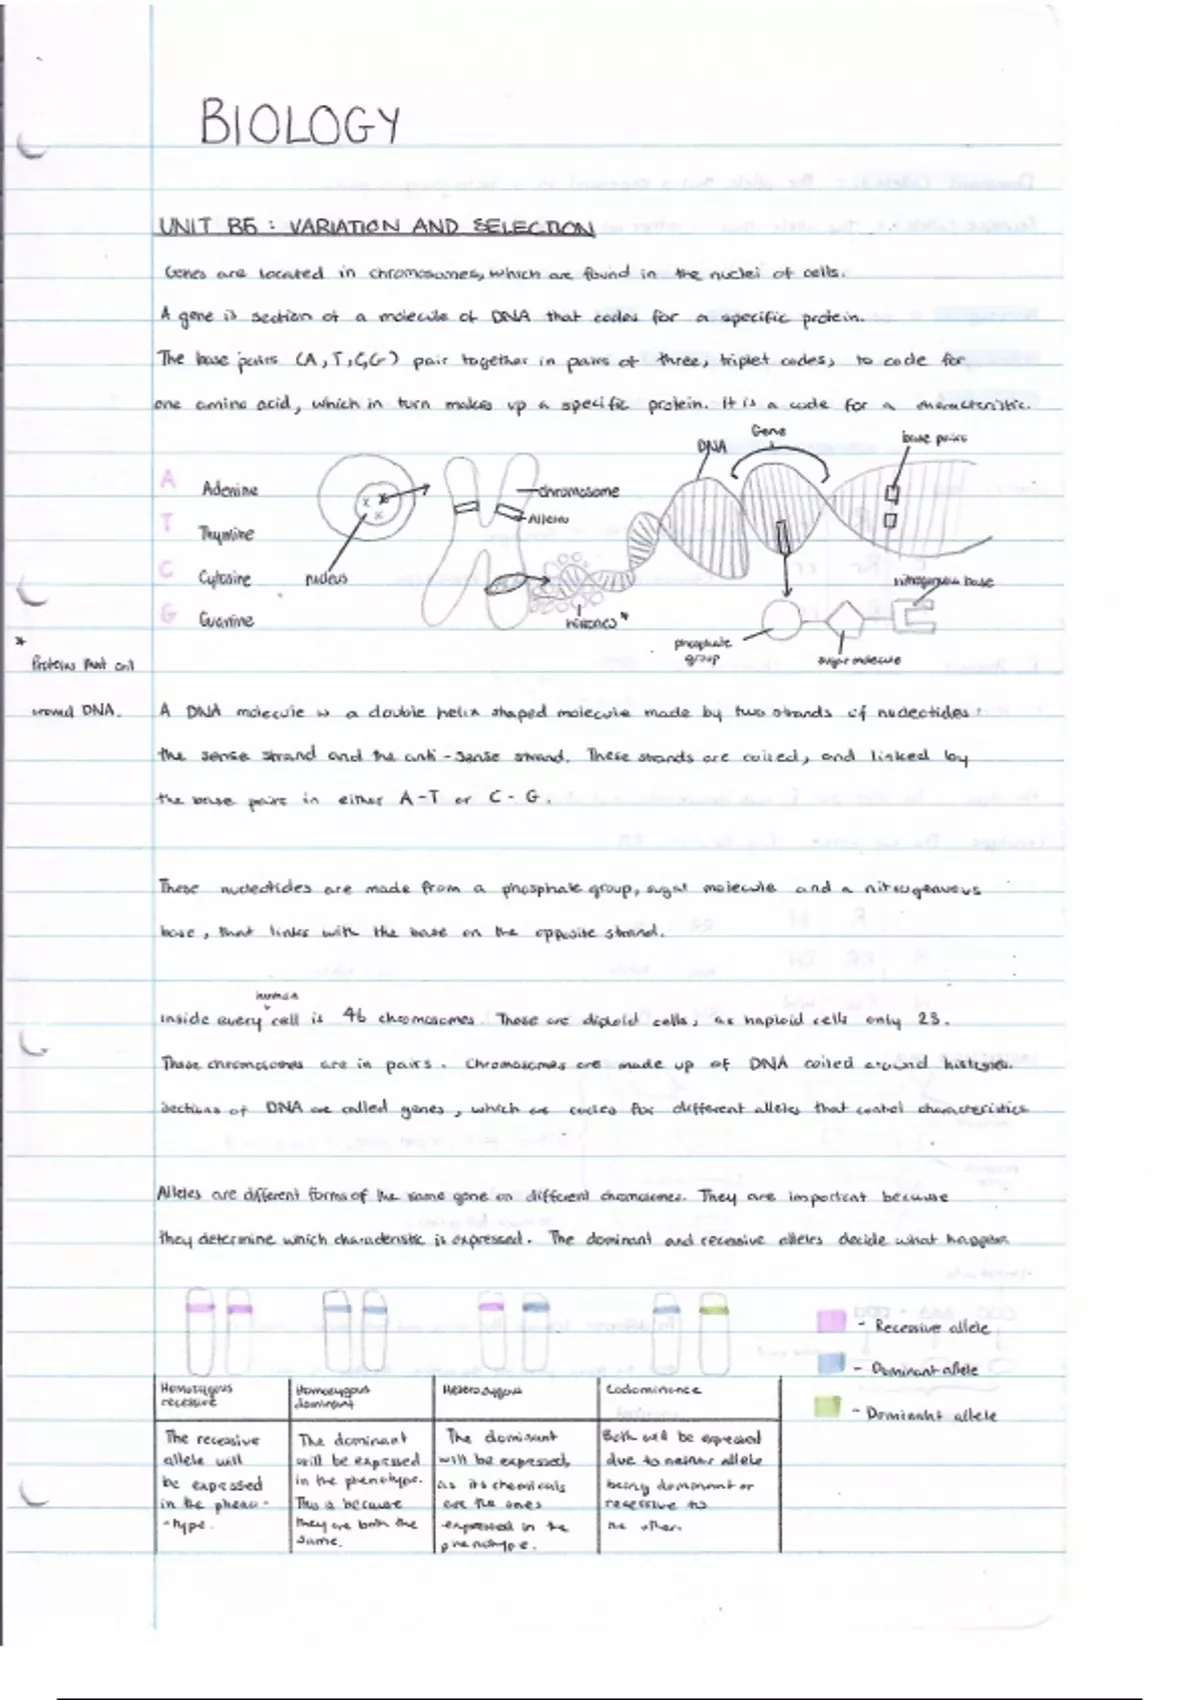 BIOLOGY
UNIT B5 : VARIATION AND SELECTION
Genes are located in chromosomes, which are found in the nuclei of cells.
A gene is section of a molecule of DNA that codes for a specific protein.
The base pairs (A, T, C, G) pair together in pairs of three, triplet codes, to code for
one amino acid, which in turn makes up a specific protein. It is a code for a characteristic.
A Adenine
T Thymine
C Cytosine
G Guanine
nucleus
chromosome
Alleles
histones *
DNA
Gene
base pairs
nitrogenous base
phosphate
group
sugar molecule
*
Proteins that coil
around DNA.
A DNA molecule is a double helix shaped molecule made by two strands of nucleotides :
the sense strand and the anti-sense strand. These strands are coiled, and linked by
the base pairs in either A-T or C-G.
These nucleotides are made from a phosphate group, sugar molecule and a nitrogenous
base, that links with the base on the opposite strand.
human
inside every cell is 46 chromosomes. These are diploid cells, as haploid cells only 23.
These chromosomes are in pairs. Chromosomes are made up of DNA coiled around histones.
Sections of DNA are called genes, which are codes for different alleles that control characteristics
Alleles are different forms of the same gene on different chromosomes. They are important because
they determine which characteristic is expressed. The dominant and recessive alleles decide what happens.
- Recessive allele
- Dominant allele
- Dominant allele
Homozygous
recessive
The recessive
allele will
be expressed
in the pheno-
-type.
Homozygous
dominant
The dominant
will be expressed
in the phenotype.
This is because
they are both the
same.
Heterozygous
The dominant
will be expressed,
as its chemicals
are the ones
expressed in the
phenotype.
Codominance
Both will be expressed
due to neither allele
being dominant or
recessive to
the other.